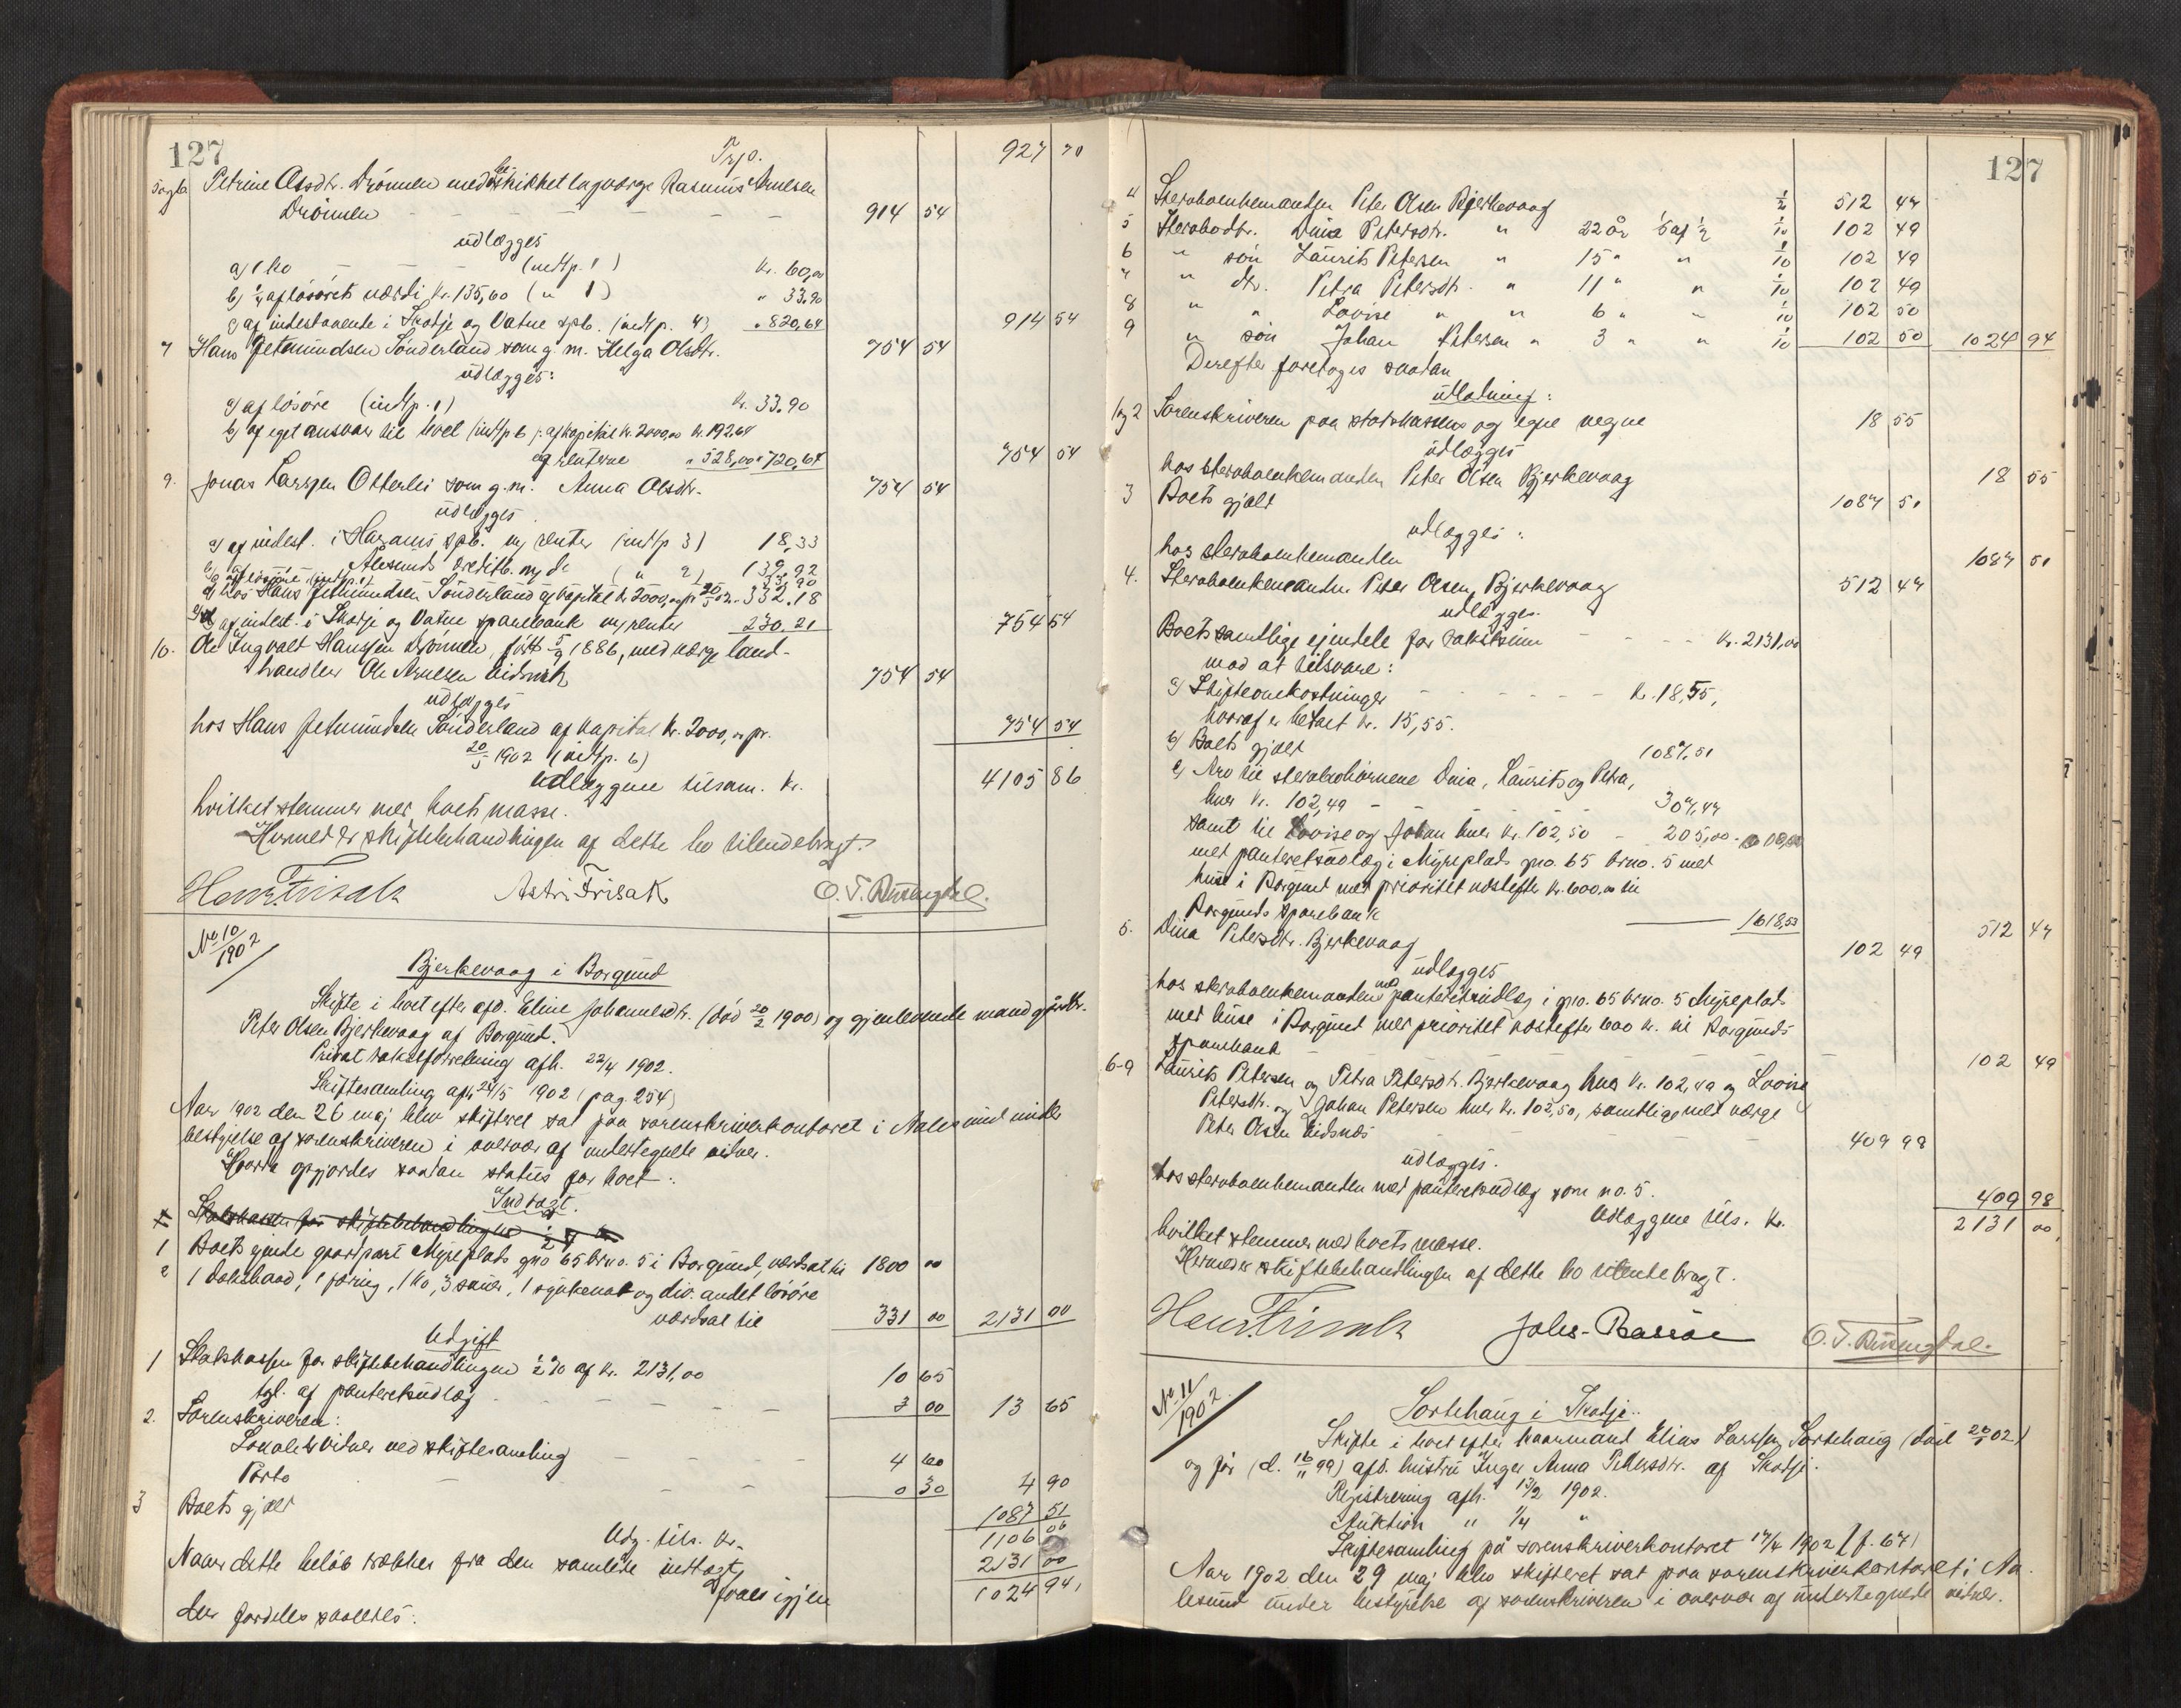 127
Trp. 927 70
5og6a Petrine Olsdtr. Drönnen med beskikket lagværge Rasmus Arnesen
Drönnen - - - - - 914 54
udlægges
a) 1 ko - - - (indtp. 1) kr. 60,00
b) 1/4 af lösörets værdi kr. 135,60 (" 1) " 33.90
c) af indestaaende i Skodje og Vatne spb. (indtp. 4) " 820,64 914 54
7 Hans Jetmundsen Sönderland som g. m. Helga Olsdtr. 754 54
udlægges:
a) af lösöre (indtp. 1) kr. 33.90
b) af eget ansvar til boet (indtp 6): af kapital kr. 2000,00 kr. 192,64
og renterne " 528,00 " 720,64 754 54
9. Jonas Larssen Otterlei som g. m. Anna Olsdtr. 754 54
udlægges
a) af indest. i Harams spb. m/ renter (indtp 3) 18,33
b) af - Alesunds kreditb. m/ do (" 2) 139,92
c) af lösöre (indtp. 1) 33,90
d) hos Hans Jetmundsen Sönderland af kapital kr. 2000,00 pr. 20/5 02. 332.18
e) af indest. i Skodje og Vatne sparebank m/ renter 230.21 754 54
10. Ole Ingvald Hansen Drönnen, födt 5/9 1886, med værge land-
handler Ole Arnesen Eidsvik 754 54
udlægges
hos Hans Jetmundsen Sönderland af kapital kr. 2000,00 pr. 754 54
20/5 1902 (indtp. 6)
Udlæggene tilsam. kr. 4105 86
hvilket stemmer med boets masse.
Hermed er skiftebehandlingen af dette bo tilendebragt.
Henr. Frisak Astri Frisak O. T. Rusengdal.
No 10/1902
Bjerkevaag i Borgund
Skifte i boet efter afd. Eline Johannesdtr. (död 20/2 1900) og gjenlevende mand gaardbr.
Peter Olsen Bjerkevaag af Borgund.
Privat takstforretning afh. 22/4 1902.
Skiftesamling afh. 24/5 1902 (pag. 254)
Aar 1902 den 26 maj blev skifteret sat paa sorenskriverkontoret i Aalesund under
bestyrelse af sorenskriveren i overvær af undertegnede vidner.
Hvorpaa opgjordes saadan status for boet:
Indtægt.
Statskassen for skiftebehandlingen 1/2 %
1 Boets eiende gaardpart Myreplads gno 65 brno. 5 i Borgund, værdsat til 1800 00
2 1 baksbaad, 1 færing, 1 ko, 3 sauer, 1 sjökenot og div. andet lösöre
værdsat til 331 00 2131 00
Udgift
1 Statskassen for skiftebehandlingen 1/2 % af kr. 2131,00 10 65
tgl. af panteretsudlæg - - - - 3 00 13 65
2. Sorenskriveren:
Lokale & vidner ved skiftesamling - - 4 60
Porto - - - 0 30 4 90
3 Boets gjæld 1087 51
Udg. tils. kr. 1106 06
Naar dette belöb trækkes fra den samlede indtægt, 2131 00
faaes igjen 1024 94
der fordeles saaledes:
127
4 Sterboenkemanden Peter Olsen Bjerkevaag 1/2 512 47
5 Sterbodtr. Dina Petersdtr. " 22 år 1/5 af 1/2 1/10 102 49
6 " sön Laurits Petersen " 15 " " 1/10 102 49
7 " dtr. Petra Petersdtr. " 11 " " 1/10 102 49
8 " " Lovise " " 6 " " 1/10 102 50
9 " sön Johan Petersen " 3 " " 1/10 102 50 1024 94
Derefter foretoges saadan
udlodning:
1og2 Sorenskriveren paa statskassens og egne vegne 18 55
udlægges
hos sterboenkemanden Peter Olsen Bjerkevaag 18 55
3 Boets gjæld 1087 51
udlægges:
hos sterboenkemanden 1087 51
4. Sterboenkemanden Peter Olsen Bjerkevaag 512 47
udlægges
Boets samtlige ejendele for takstsum - - - - kr. 2131,00
mod at tilsvare:
a) Skifteomkostninger - - - - - kr. 18,55,
hvoraf er betalt kr. 15,55.
b) Boets gjæld 1087,51
c) Arv til sterbobörnene Dina, Laurits og Petra,
hver kr. 102,49 - - - 307,47
samt til Lovise og Johan hver kr. 102,50 - 205,00
med panteretsudlæg i Myreplads gno. 65 brno. 5 med
huse i Borgund med prioritet næstefter kr. 600,00 til
Borgunds sparebank 1618,53 512 47
5. Dina Petersdtr. Bjerkevaag 102 49
udlægges
hos sterboenkemanden med panteretsudlæg i gno. 65 brno. 5 Myreplads
med huse i Borgund med prioritet næstefter 600 kr. til Borgunds
sparebank - - - - 102 49
6-9 Laurits Petersen og Petra Petersdtr. Bjerkevaag hver kr. 102,49 og Lovise
Petersdtr. og Johan Petersen hver kr. 102,50, samtlige med værge
Peter Olsen Eidsnæs - - - - - 409 98
udlægges.
hos sterboenkemanden med panteretsudlæg som no. 5. 409 98
Udlæggene tils. kr. 2131 00
hvilket stemmer med boets masse.
Hermed er skiftebehandlingen af dette bo tilendebragt.
Henr. Frisak Johs. Bassøe O. T. Rusengdal.
No 11/1902.
Sortehaug i Skodje.
Skifte i boet efter kaarmand Elias Larssen Sortehaug (död 20/1 02)
og för (d. 16/11 99) afd. hustru Inger Anna Petersdtr. af Skodje.
Registrering afh. 13/2 1902.
Auktion " 1/4 "
Skiftesamling på sorenskriverkontoret 17/4 1902 (f. 67)
Aar 1902 den 29 maj blev skifteret sat paa sorenskriverkontoret i Aa-
lesund under bestyrelse af sorenskriveren i overvær af undertegnede vidner.